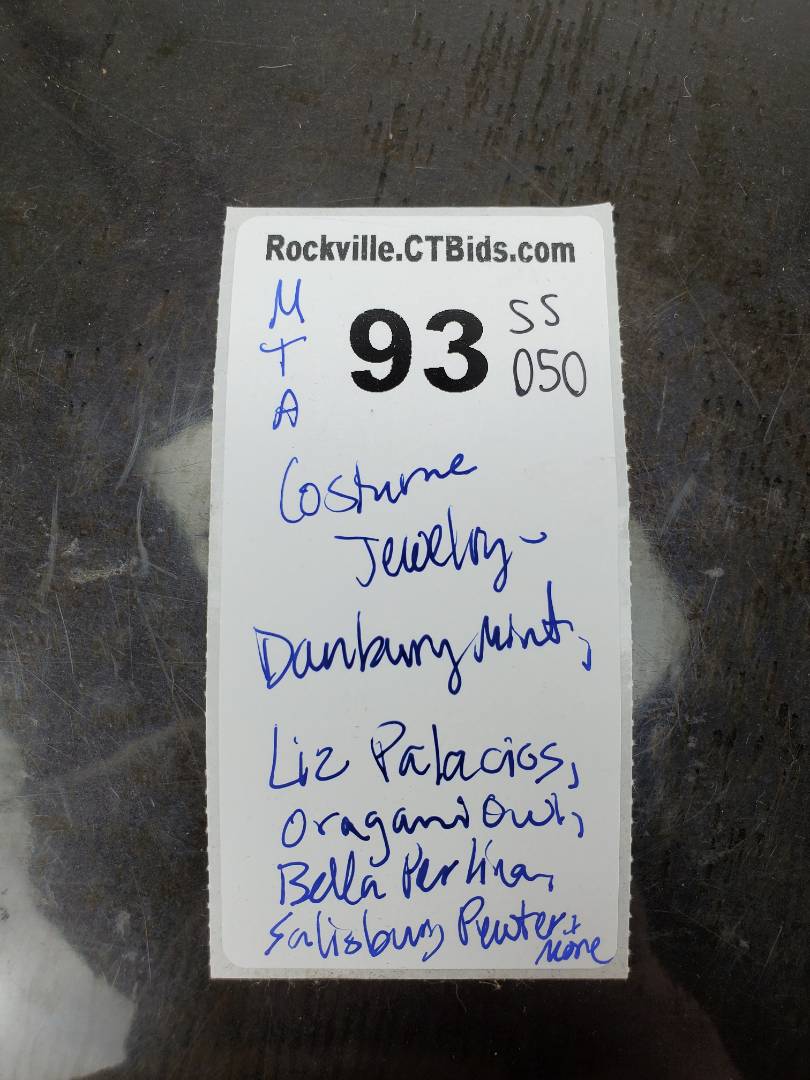 Rockville.CTBids.com
M
T
A
93
SS
050
Costume
Jewelry -
Danbury Mint,
Liz Palacios,
Oragami Owl,
Bella Perlina,
Salisbury Pewter +
More